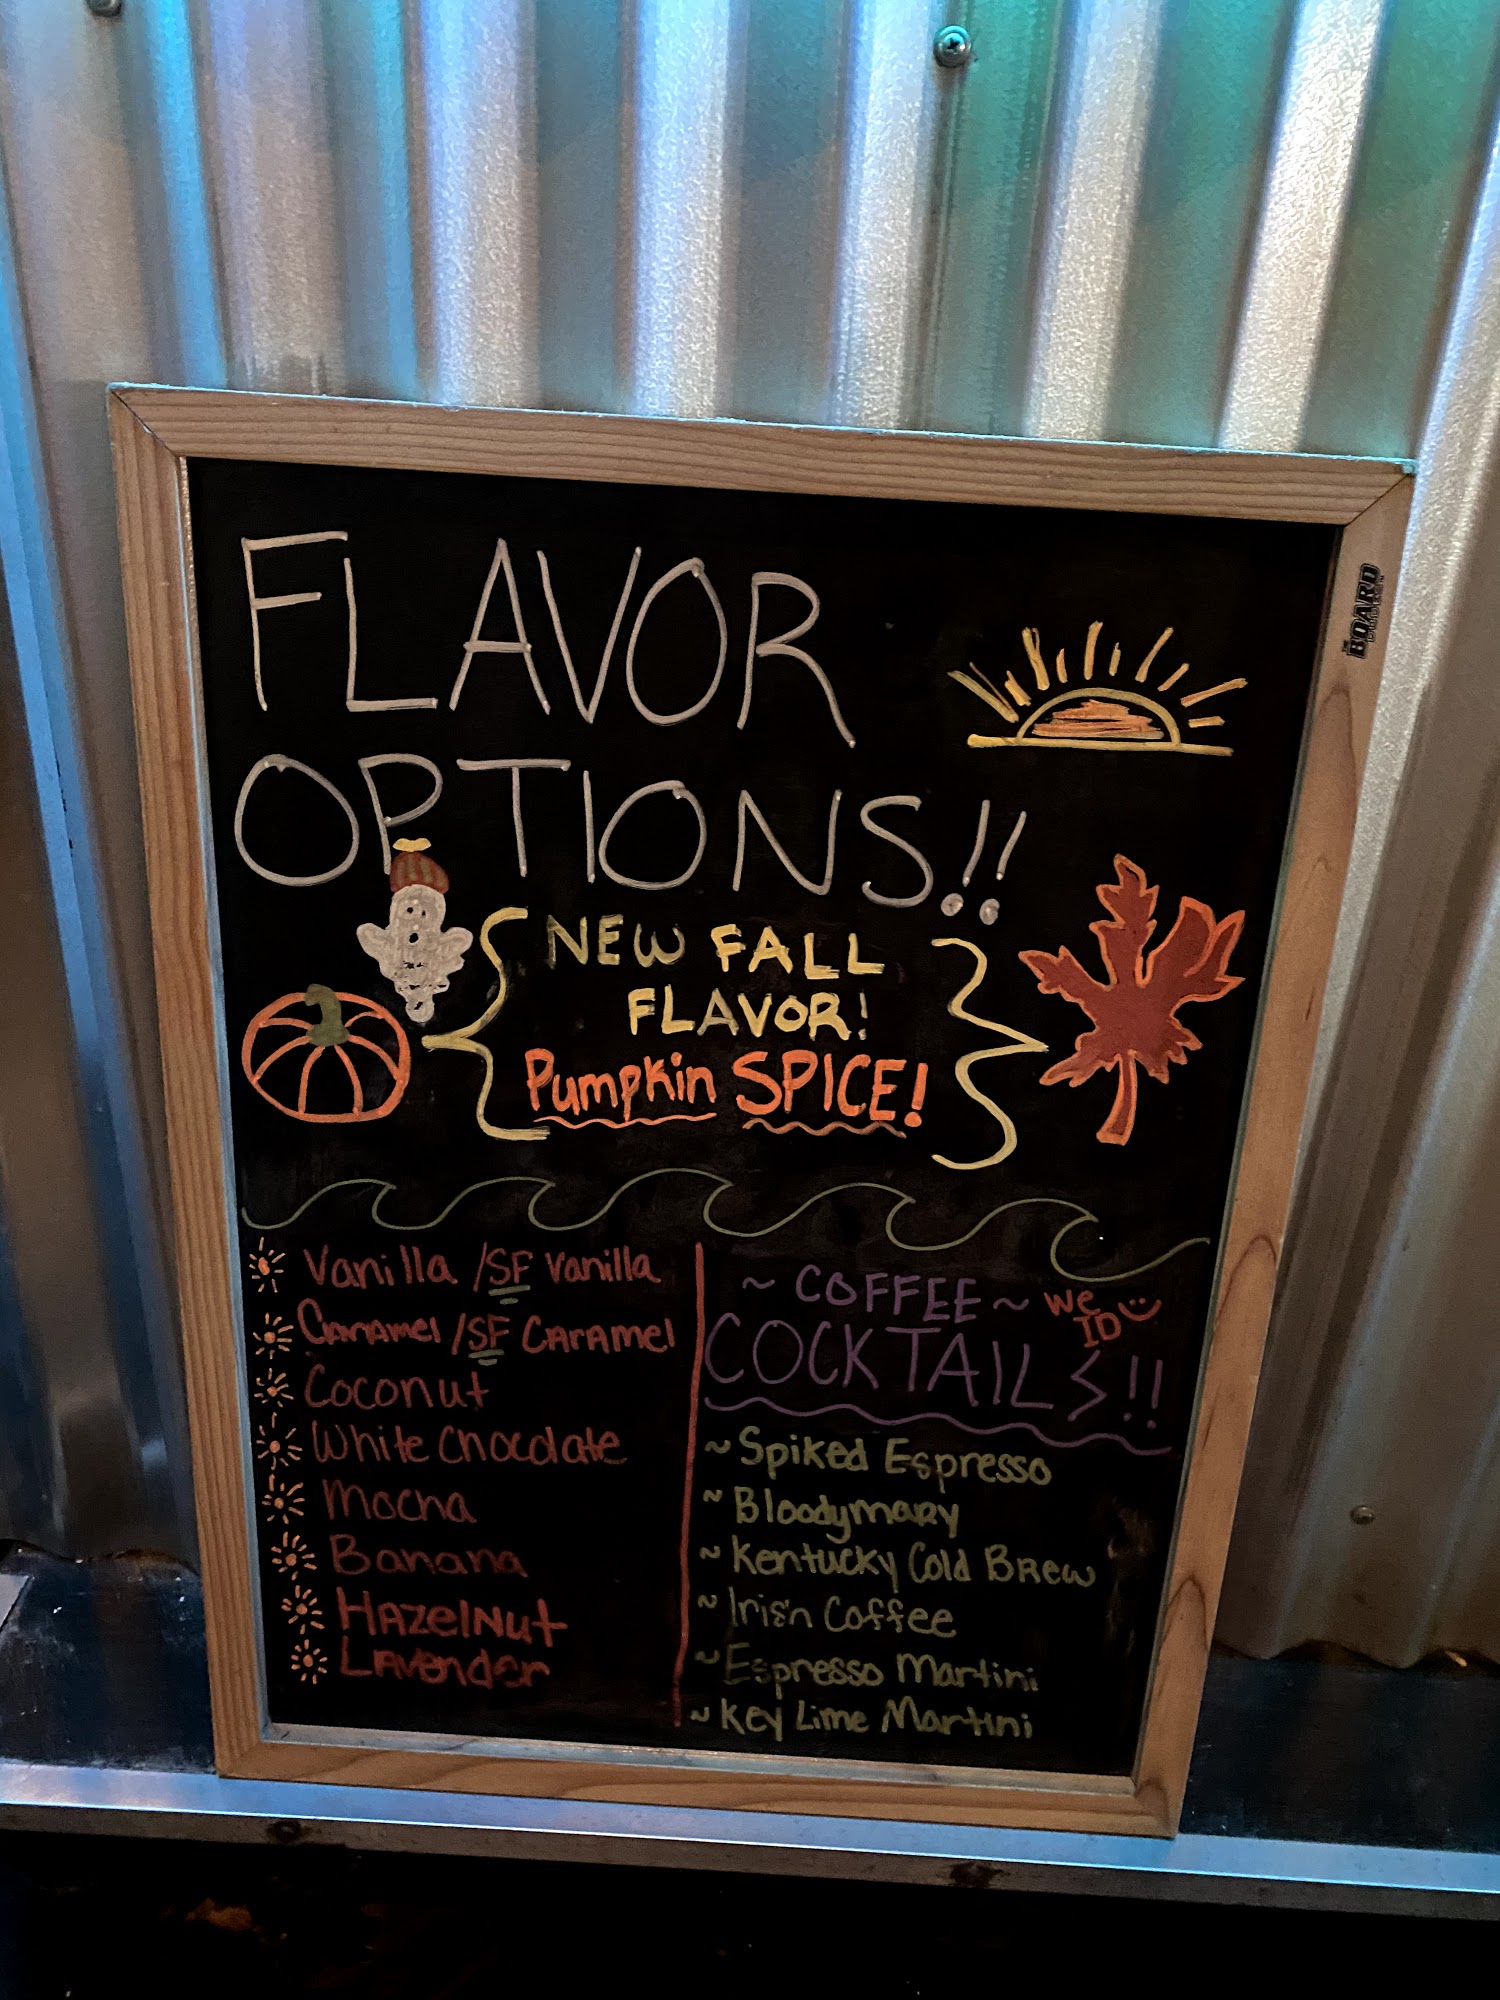 FLAVOR
OPTIONS!!
NEW FALL
FLAVOR!
Pumpkin SPICE!
Vanilla /SF Vanilla
Caramel /SF Caramel
Coconut
White Chocolate
Mocha
Banana
HazelNut
Lavender
~ COFFEE ~
We
ID
COCKTAILS!!
~ Spiked Espresso
~ Bloodymary
~ Kentucky Cold Brew
~ Irish Coffee
~ Espresso Martini
~ Key Lime Martini
THE
BOARD
DUDES